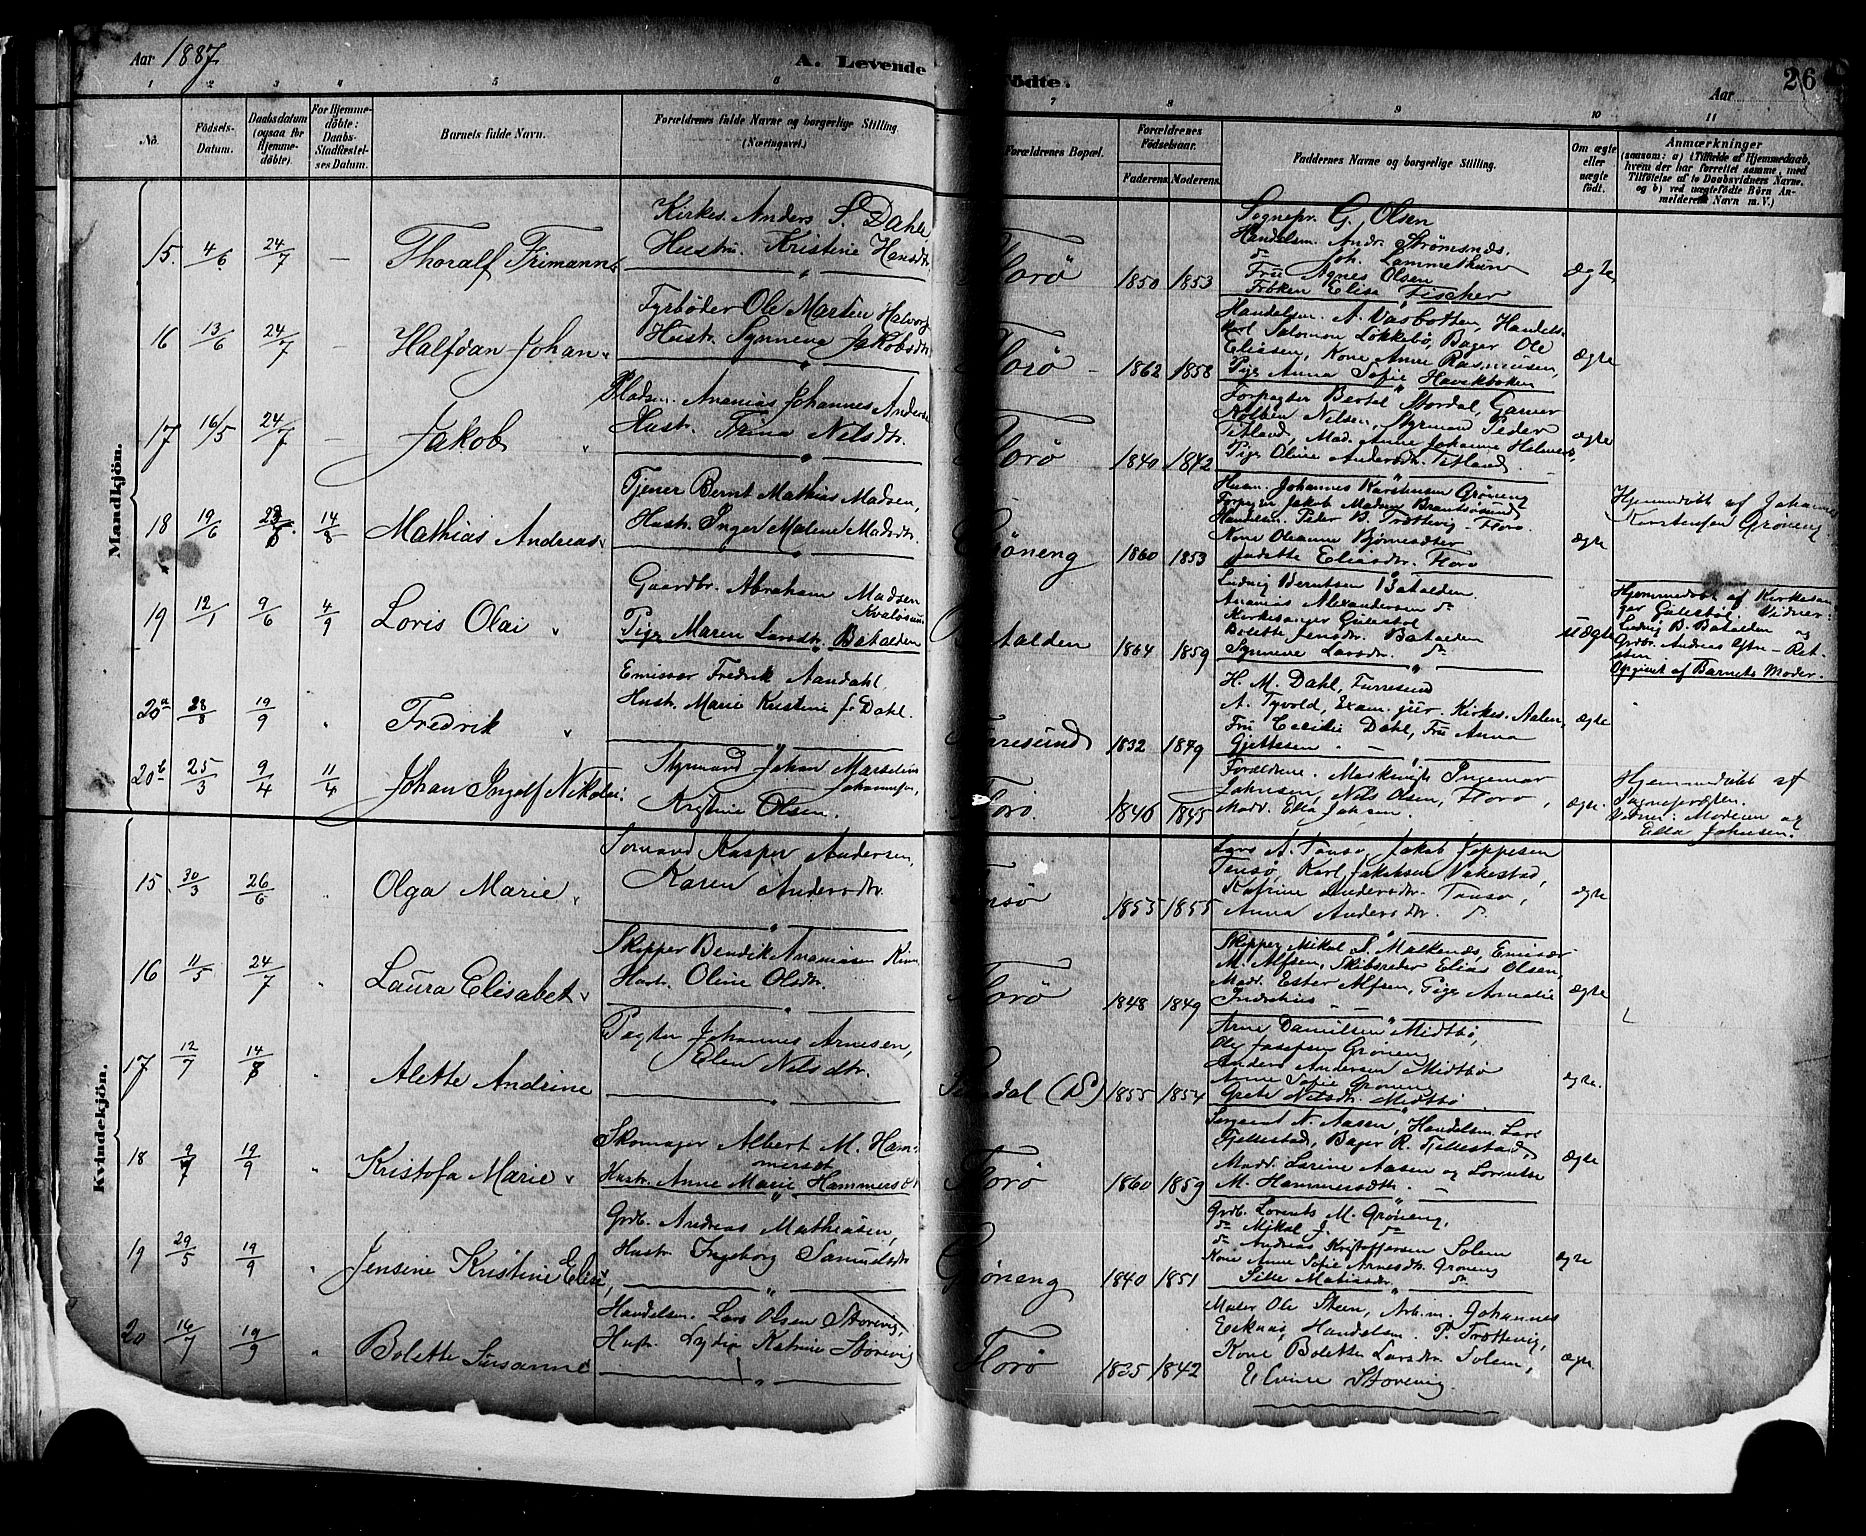 Aar 1887
A. Levende
Födte.
Aar
26
1 2 3 4 5 6 7 8 9 10 11
No.
Födsels-
Datum.
Daabsdatum
(ogsaa for
Hjemme-
döbte).
For Hjemme-
döbte:
Daabs-
Stadfæstel-
ses Datum.
Barnets fulde Navn.
Forældrenes fulde Navne og borgerlige Stilling
(Næringsvei.)
Forældrenes Bopæl.
Forældrenes
Födselsaar.
Faderens.
Moderens.
Faddernes Navne og borgerlige Stilling.
Om ægte
eller
uægte
födt.
Anmærkninger
(saasom: a) i Tilfælde af Hjemmedaab,
hvem der har forrettet samme, med
Tilföielse af to Daabsvidners Navne.
og b) ved uægtefödte Börn An-
melderens Navn m. V.)
Mandkjön.
15. 4/6. 24/7 —
Thoralf Frimann
Kirkes. Anders S. Dahle,
Hustru Kristine Hansdtr.
Florö
1850 1853
Sognepr. G. Olsen
Handelsm. Andr. Strömsnæs,
do Joh. Lammetun
Fru Agnes Olsen
Fröken Elisa Fischer
Ægte
16 13/6 24/7
Halfdan Johan
Fyrböder Ole Martin Halvors
Hustr. Synneva Jakobsdtr
Florö
1862 1858
Handelsm. A. Vasbotten, Handels-
karl Salomon Lökkebö, Bager Ole
Eliassen, Kone Anne Rasmussen,
Pige Anna Sofie Havikboken
Ægte
17 16/5 24/7 —
Jakob
Pladsm. Ananias Johannes Anders
Hustr. Trina Nilsdtr.
Florö
1840 1842
Forpagter Bertel Stordal, Garver
Kolben Nilsen, Styrmand Peder
Titland, Mad. Anne Johanne Halmers,
Pige Oline Andersdtr. Titland.
Ægte
18 19/6 14/8
Mathias Andreas
Tjener Bernt Mathias Madsen,
Hustr. Inger Malene Madsdtr
Gröneng
1860 1853
Husm. Johannes Karstensen Gröneng
Forpagter Jakob Madsen Brandösund
Handelsm. Peter B. Trættevig Florö
Kone Oleanne Björnesdtter
Jadette Eliasdtr. Florö
Ægte
Hjemmdöbt af Johannes
Karstensen Gröneng
19 12/1 9/6 4/9
Loris Olai
Gaardbr. Abraham Madsen
Kvalösund
Pige Maren Larsdtr. Batalden
Batalden
1864 1859
Ludvig Berntsen Batalden
Ananias Alexandersen do
Kirkesanger Gulestöl
Bolette Jensdtr. Batalden
Synneve Larsdtr. do
uÆgte
Hjemmedöbt af Kirkesan-
ger Gulestöl, Vidner:
Ludvig B. Batalden og
Opgivet af Barnets Moder.
20a 28/8 19/9
Fredrik
Emissær Fredrik Aandahl
Hustr. Marie Kristine f. Dahl.
Furresund
1832 1849
H. M. Dahl, Furresund
A. Tyvold, Exam. jur. Kirkes. Aalen,
Fru Cecilie Dahl, Fru Anna
Gjettesen.
Ægte
20b 25/3 9/4 11/4
Johan Ingolf Nikolai
Styrmand Johan Marselius
Johannesen,
Kristine Olsen.
Florö
1846 1845
Forældrene. Ingemar
Johnsen, Nils Olsen, Florö,
Madd. Ella Johnsen.
Ægte.
Hjemmdöbt af
Sognepræsten.
Vidner: Moderen og
Ella Johnsen.
Kvindekjön.
15 30/3 26/6
Olga Marie
Sömand Kasper Andersen,
Karen Andersdtr.
Tansö
1853 1855
Lars A. Tansö, Jakob Jeppesen
Tansö, Karl Jakobsen Vakestad,
Katrine Andersdtr. Tansö,
Anna Andersdtr. do.
Ægte
16 11/5 24/7
Laura Elisabet
Skipper Bendik Ananiasen Kinn
Hustr. Oline Olsdtr.
Florö
1848 1849
Skipper Mikal S. Malkenæs, Emissær
M. Alfsen, Skibsreder Elias Olsen,
Mad. Ester Alfsen, Pige Amalie
Indrehus
Ægte
17 12/7 14/8
Alette Andrine
Pagter Johannes Arnesen,
Elen Nilsdtr.
1855 1854
Arne Danielsen Midtbö,
Ole Josefsen Gröneng
Anders Andersen Midtbö
Anne Sofie Gröneng
Grete Nilsdtr. Midtbö
Ægte.
18 9/7 19/9
Kristofa Marie
Skomager Albert M. Ham-
merset
Hustr. Anne Marie Hammerset
Florö
1860 1859
Sergeant N. Aasen, Handelsm. Lars
Fjellestad, Bager R. Fjellestad,
Madd. Larine Aasen og Lorentse
M. Hammersdtr.
Ægte
19 29/5 19/9
Jensine Kristine Elise,
Grdb. Andreas Mathiasen,
Hustr. Ingeborg Samuelsdtr
Gröneng
1840 1851
Grdb. Lorents M. Gröneng,
do Mikal J. do
do Andreas Kristoffersen Solem
Kone Anne Sofie Arnesdtr. Gröneng
Silke Matisdtr. do.
Ægte
20 16/7 19/9
Bolette Susanne
Handelsm. Lars Olsen Storevig,
Hustr. Lydia Katrine Storevig
Florö
1835 1842
Maler Ole Steen, Arb.m. Johannes
Eiknæs, Handelsm. P. Trættevig,
Kone Bolette Larsdtr. Solem,
Elvine Storevig
Ægte.